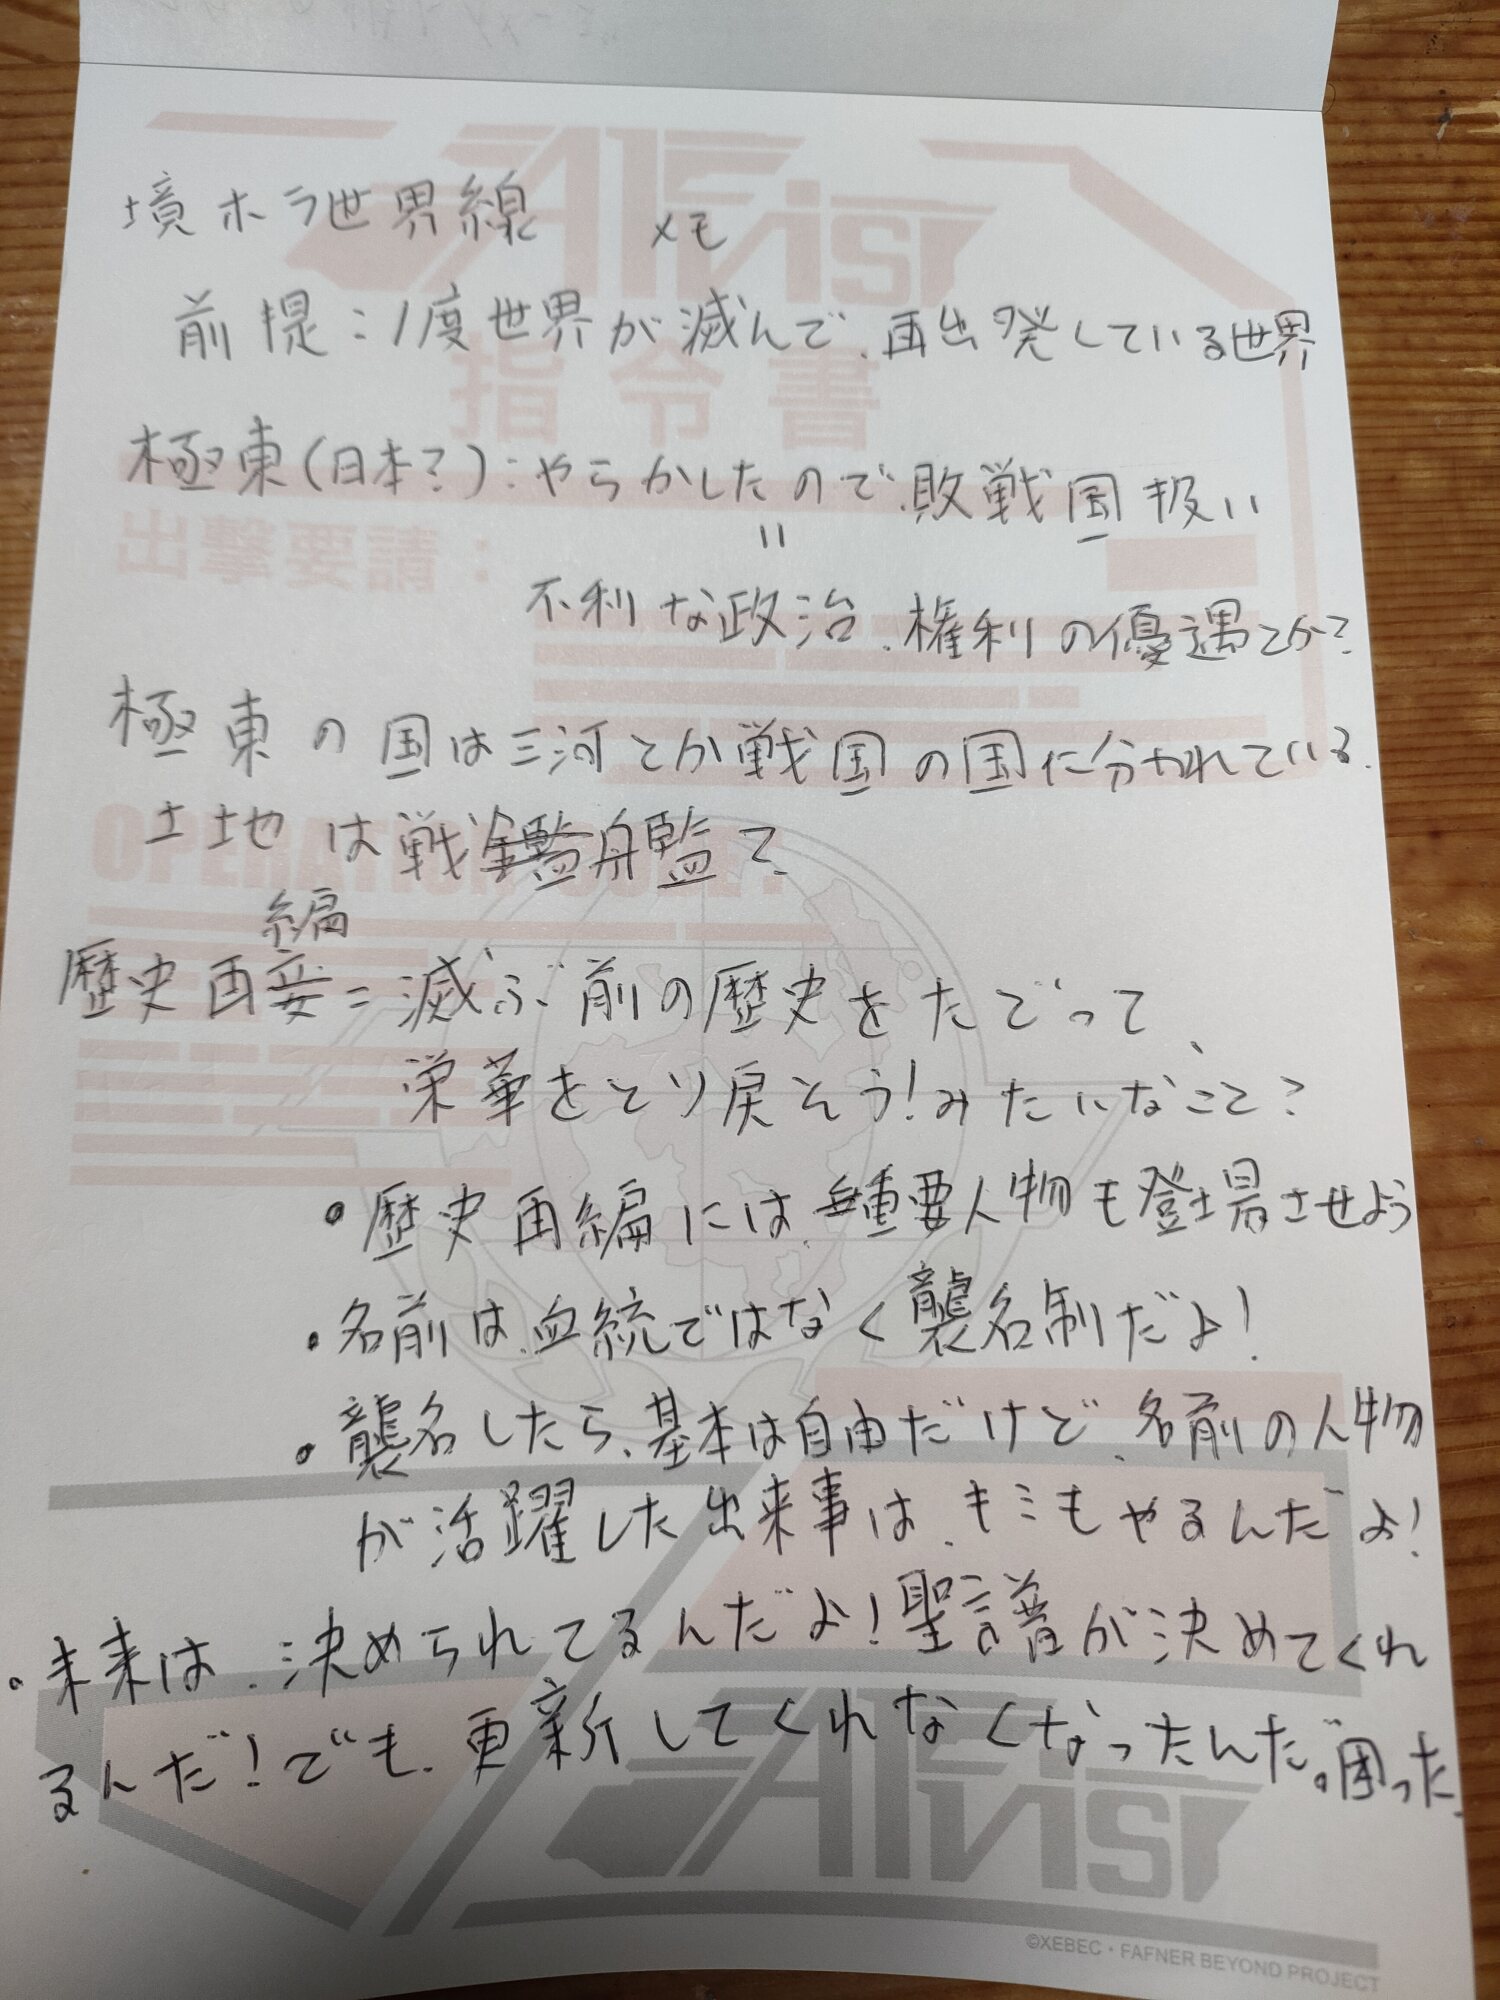 境ホラ世界線 メモ
前提：1度世界が滅んで、再出発している世界
極東(日本?)：やらかしたので、敗戦国扱い
=
不利な政治、権利の優遇とか?
極東の国は三河とか戦国の国に分かれている。
土地は戦艦で
編
歴史再 = 滅ぶ前の歴史をたどって、
栄華をとり戻そう!みたいなこと?
・歴史再編には、重要人物も登場させよう
・名前は、血統ではなく襲名制だよ!
・襲名したら、基本は自由だけど、名前の人物
が活躍した出来事は、キミもやるんだよ!
・未来は、決められてるんだよ!聖譜が決めてくれ
るんだ!でも、更新してくれなくなったんだ。困った。
指令書
出撃要請：
©XEBEC・FAFNER BEYOND PROJECT